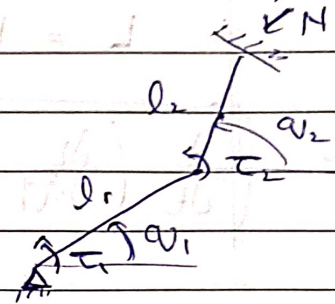 N
l₂
q₂
τ₂
l₁
q₁
τ₁